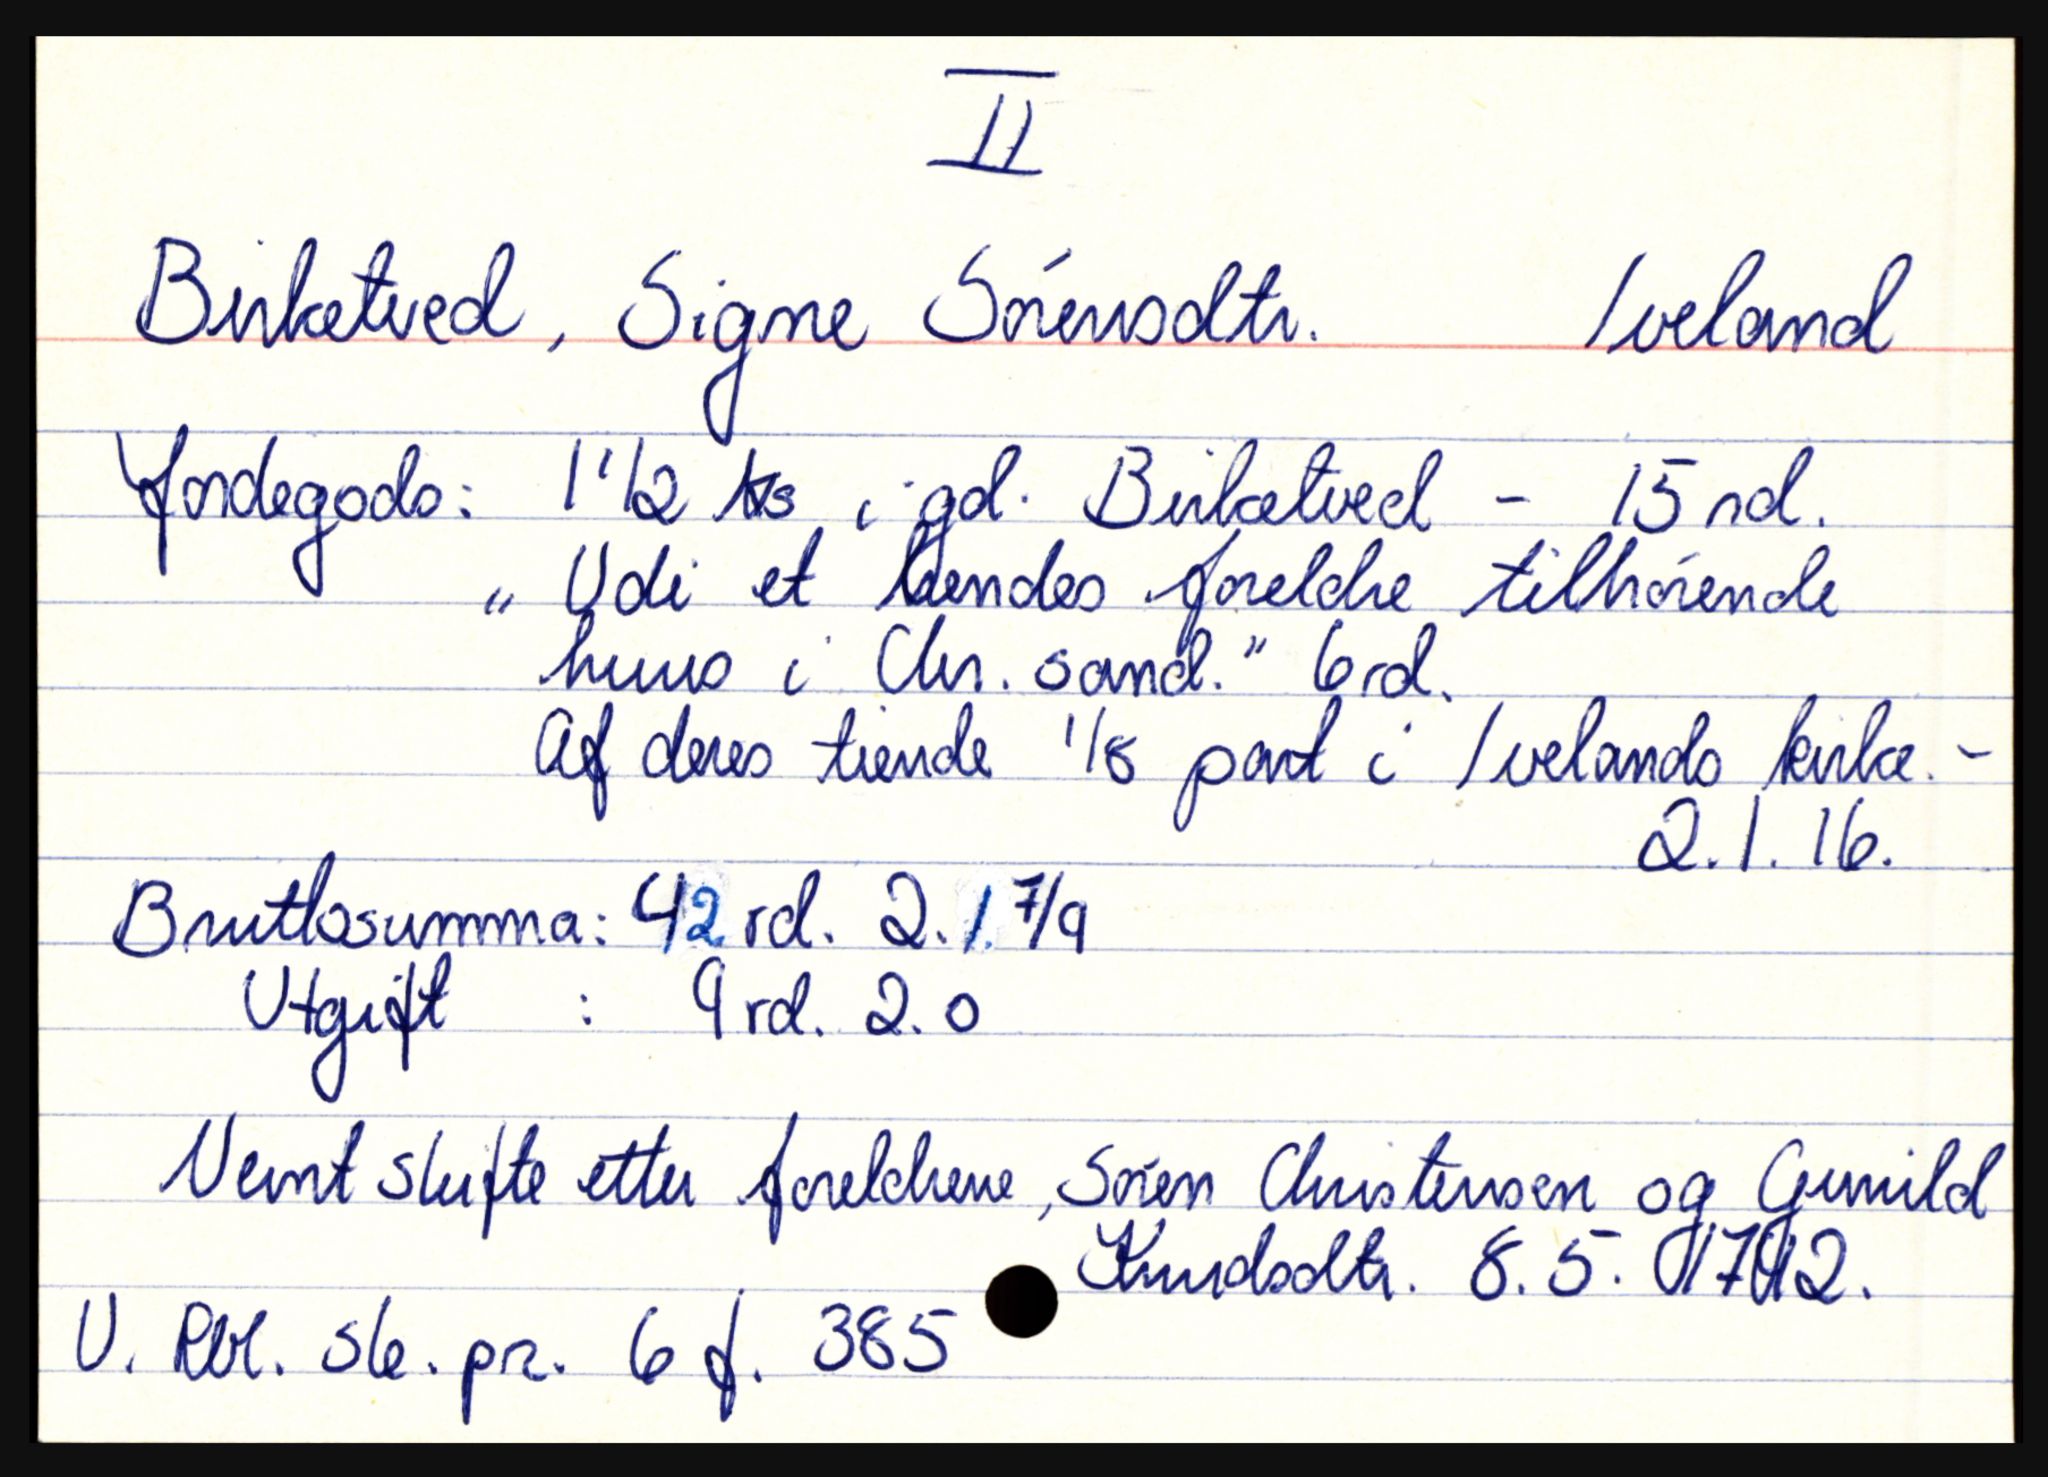 II
Birketved, Signe Sórensdtr. Iveland
Jordegods: 1 1/2 ks i gd. Birketved - 15 rd.
" Udi et hendes foreldre tilhórende
huus i Chr. sand." 6 rd.
Af deres tiende 1/8 part i Ivelands kirke. -
2.1.16.
Bruttosumma: 42 rd. 2.1.7/9
Utgift : 9 rd. 2.0
Nevnt skifte etter foreldrene, Sóren Christensen og Gunild
Knudsdtr. 8.5.1742.
V. Rbl. sk. pr. 6 f. 385